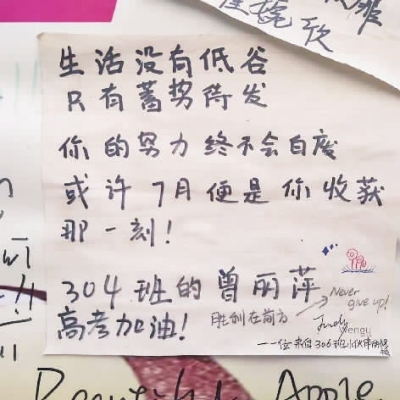 生活没有低谷
只有蓄势待发
你的努力终不会白废
或许7月便是你收获
那一刻！
304班的曾丽萍
高考加油！
胜利在前方
Never
give up!
Judy
Wengy
Beautiful Apple